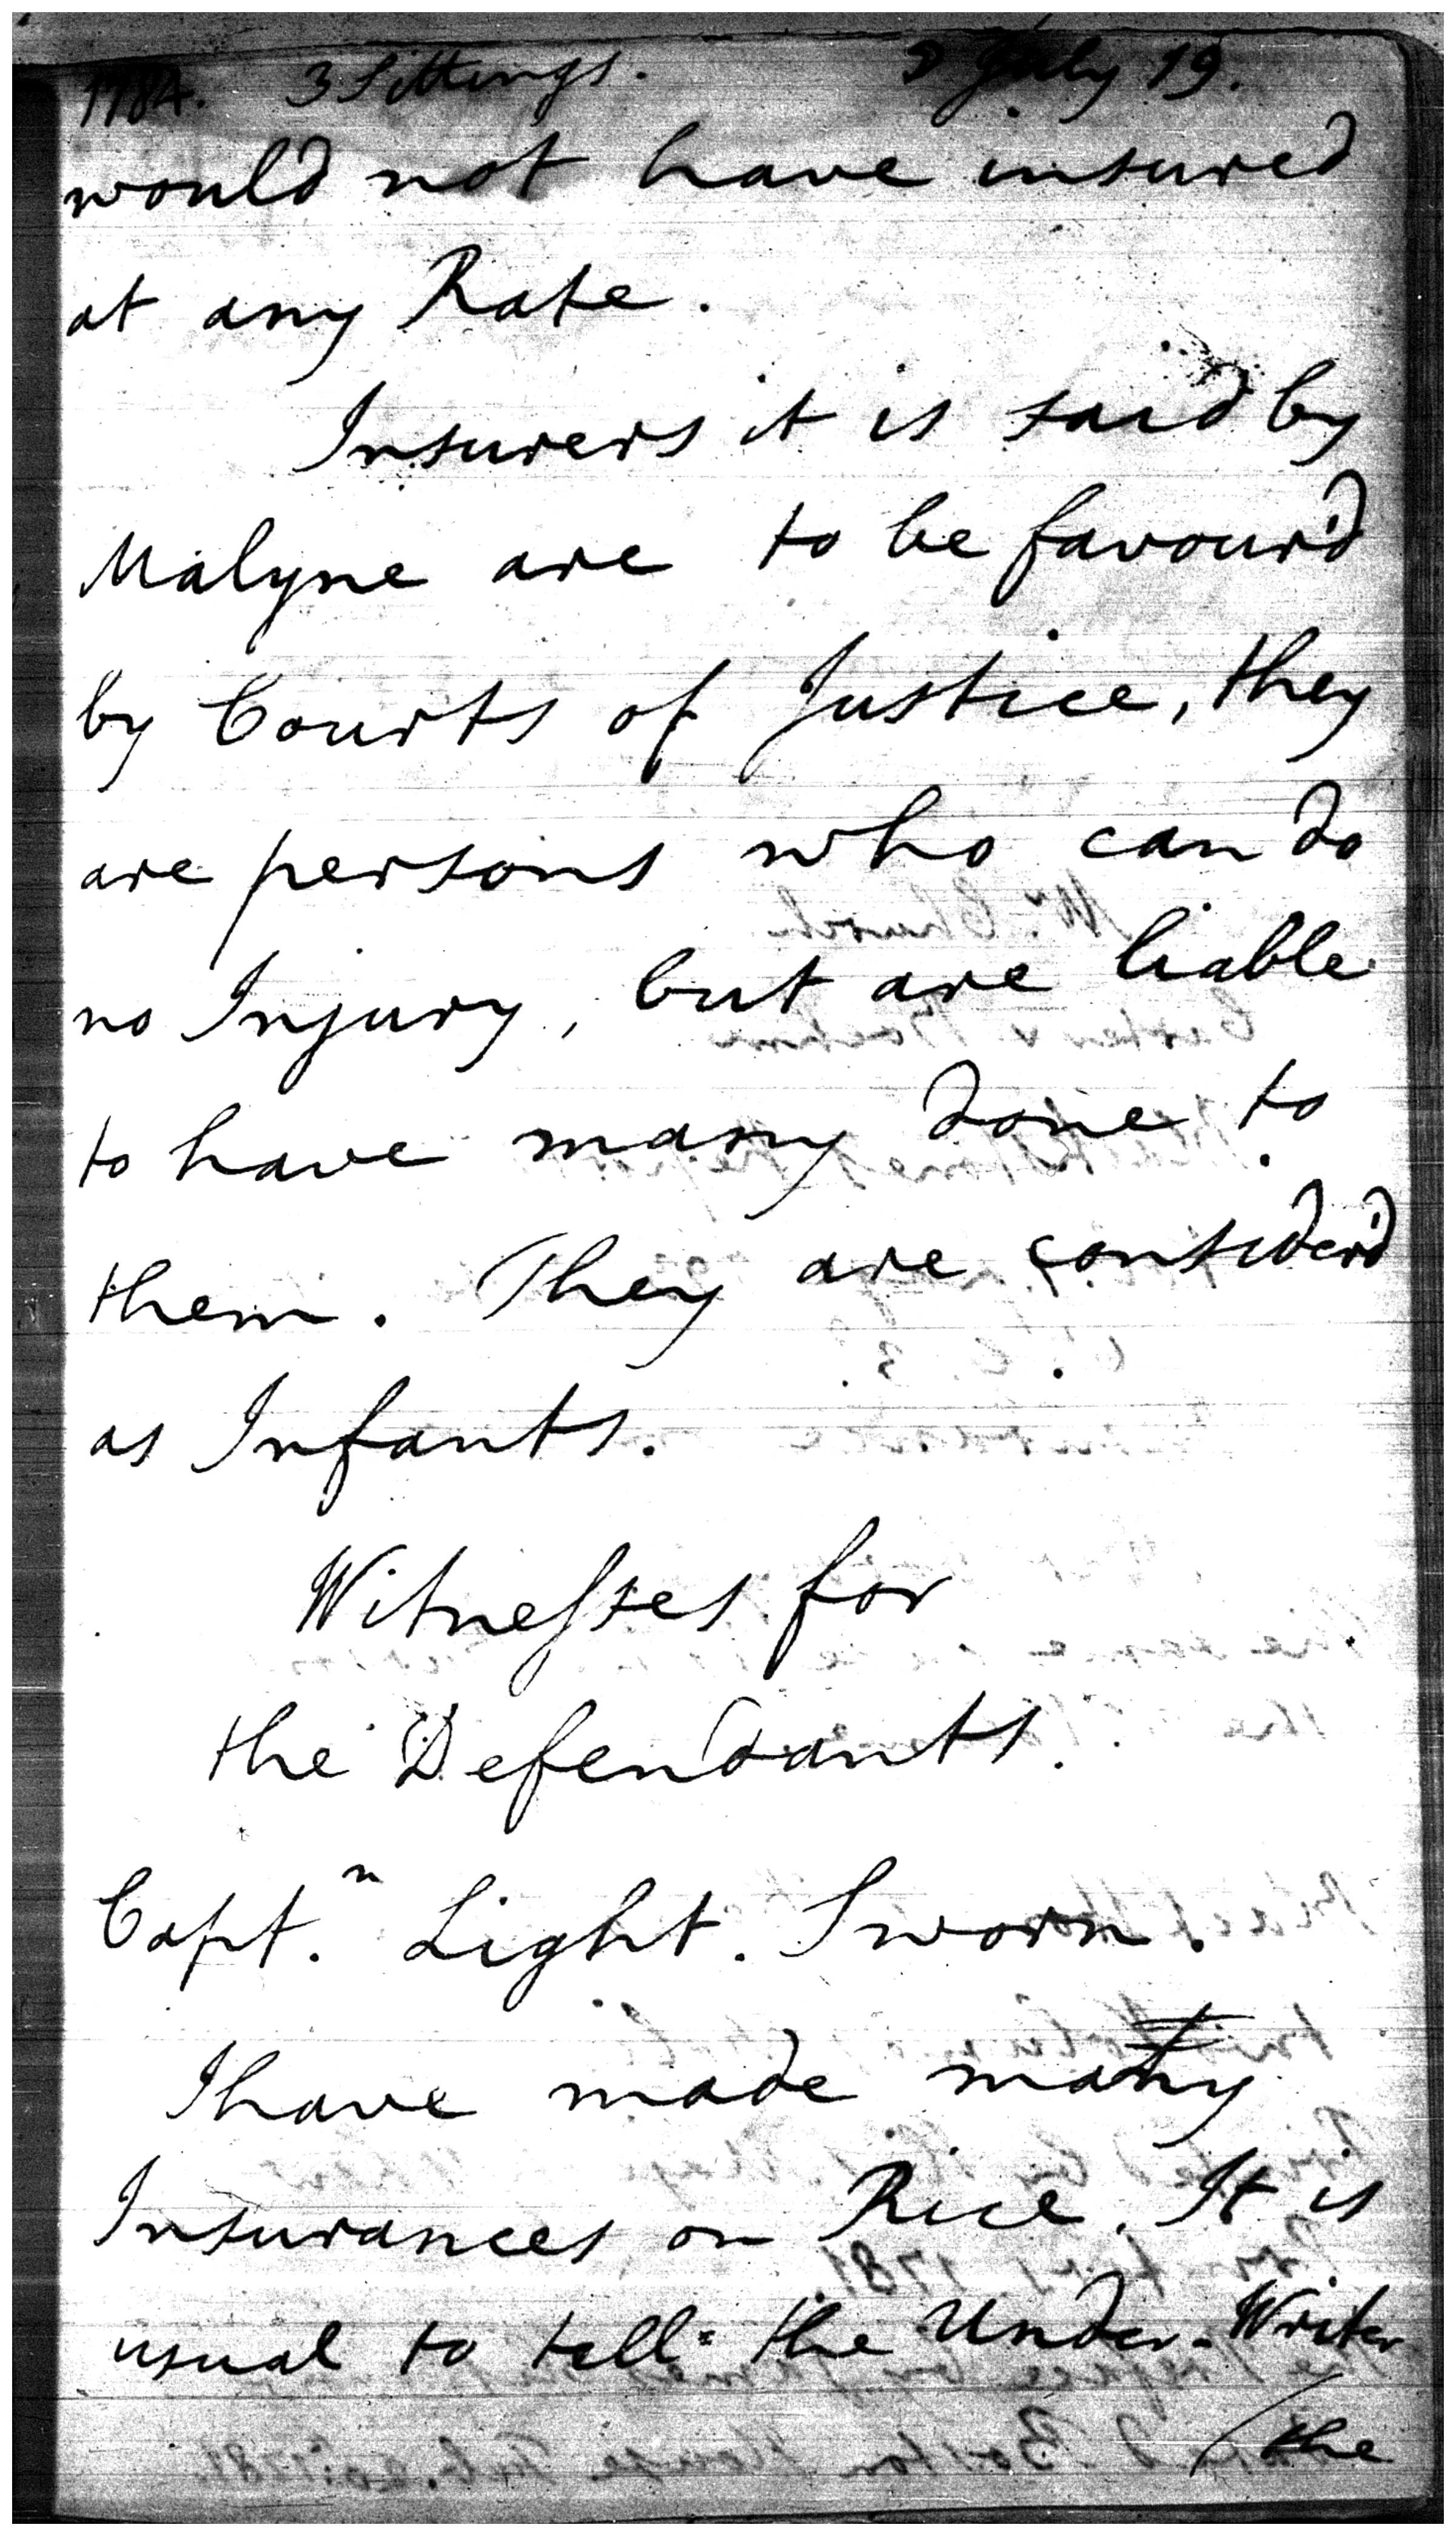 1784. 3 Sittings. July 19.
would not have insured
at any Rate.
Insurers it is said by
Malyne are to be favour'd
by Courts of Justice, they
are persons who can do
no Injury, but are liable
to have many done to
them. They are consider'd
as Infants.
Witnesses for
the Defendants.
Capt.n Light. Sworn.
I have made many
Insurances on Rice. It is
usual to tell the Under-Writer
/the